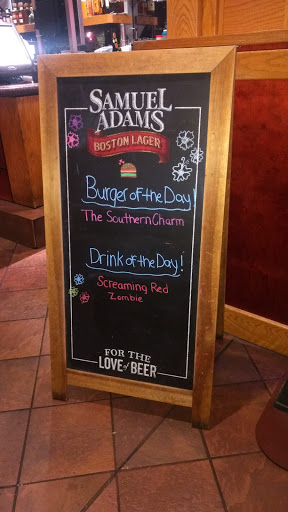 SAMUEL
ADAMS
BOSTON LAGER
Burger of the Day!
The Southern Charm
Drink of the Day!
Screaming Red
Zombie
FOR THE
LOVE of BEER